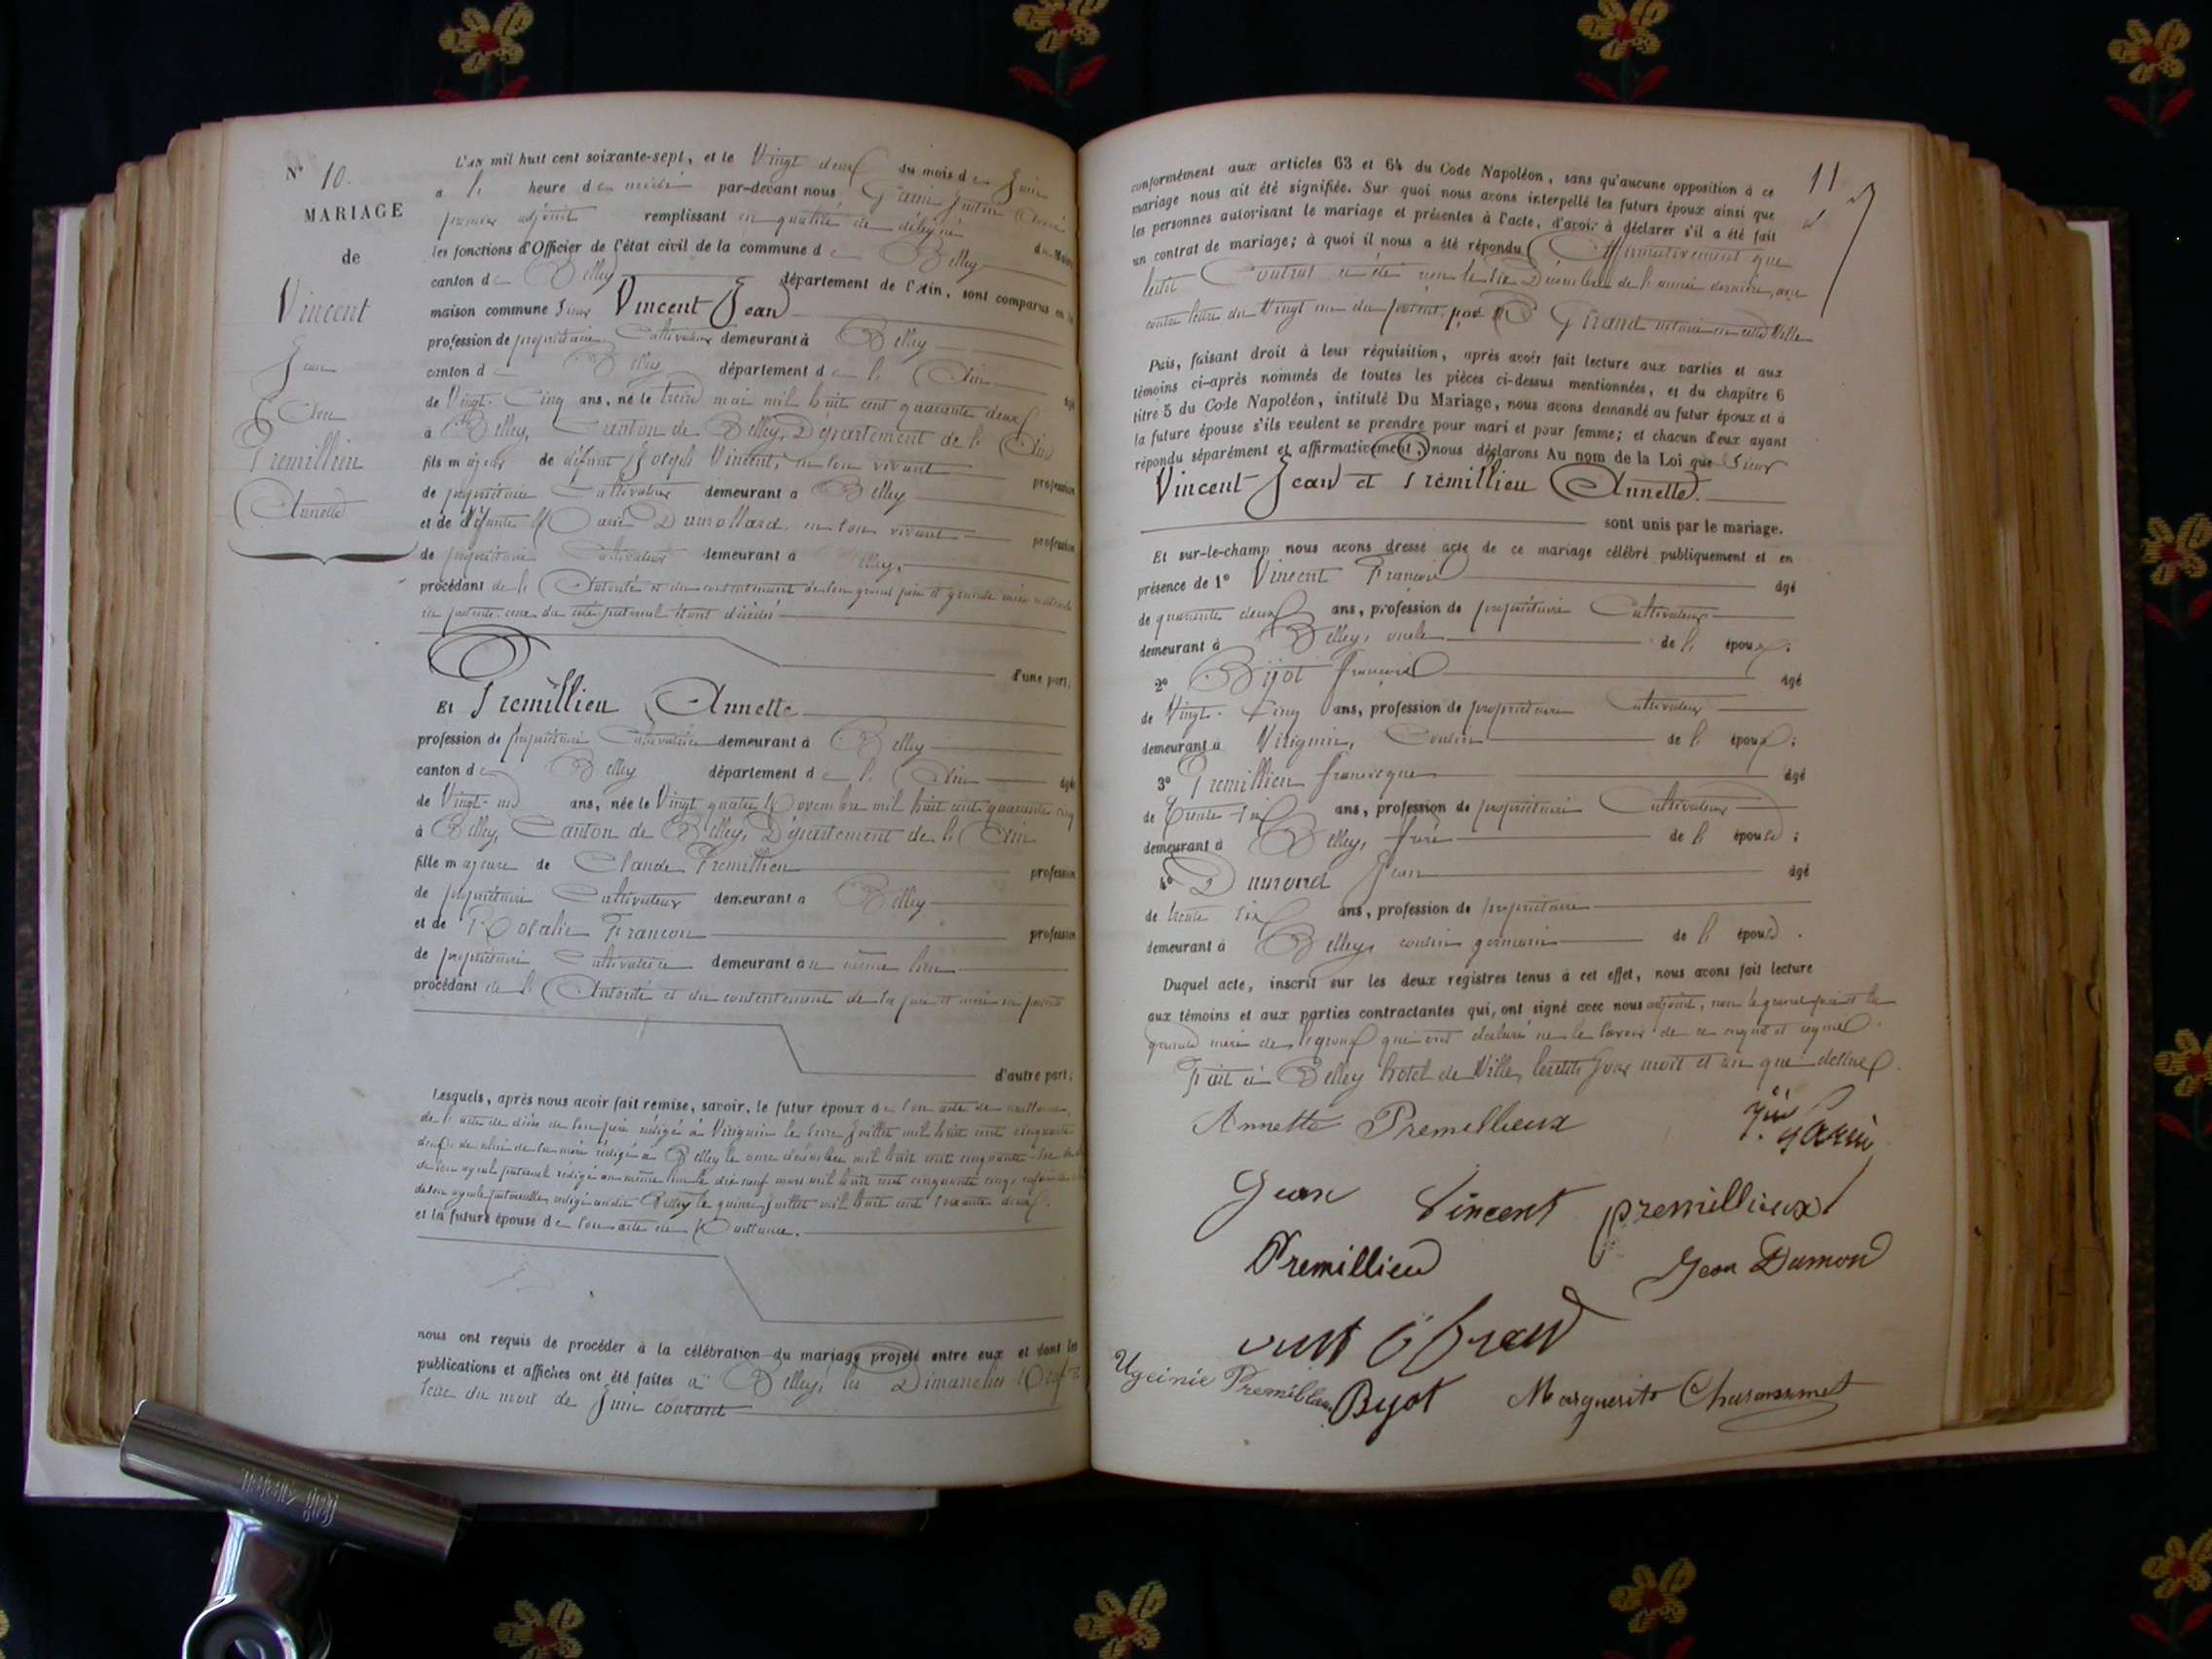 N° 10.
MARIAGE
de
Vincent
Jean
Avec
Premillieu
Annette
L'an mil huit cent soixante-sept, et le Vingt deux du mois de Juin
a l' heure de midi par-devant nous Garin
premier adjoint remplissant en qualité de délégué du Maire
les fonctions d'Officier de l'état civil de la commune de Belley
canton de Belley département de l'Ain, sont comparus en la
maison commune Sieur Vincent Jean
profession de propriétaire Cultivateur demeurant à Belley
canton de Belley département de l'Ain âgé
de Vingt-Cinq ans, né le treize mai mil huit cent quarante deux
à Belley, Canton de Belley, Département de l'Ain
fils majeur de défunt Joseph Vincent, en son vivant profession
de propriétaire Cultivateur demeurant a Belley
et de défunte Marie Dumollard, en son vivant profession
de propriétaire Cultivateur demeurant à Belley.
procédant de l'Autorité et du contentement de son grand père et grande mère maternels
ici présents, ceux du côté paternel étant décédés
d'une part,
Et Premillieu Annette
profession de propriétaire Cultivatrice demeurant à Belley
canton de Belley département de l'Ain âgée
de Vingt-un ans, née le Vingt quatre Novembre mil huit cent quarante cinq
à Belley, Canton de Belley, Département de l'Ain
fille majeure de Claude Premillieu profession
de propriétaire Cultivateur demeurant a Belley
et de Rosalie Francon profession
de propriétaire Cultivatrice demeurant au même lieu
procédant de l'Autorité et du contentement de ses père et mère ici présents
d'autre part;
Lesquels, après nous avoir fait remise, savoir, le futur époux de son acte de naissance,
de l'acte de décès de son père rédigé à Virignin le seize Juillet mil huit cent cinquante
deux, de celui de sa mère rédigé à Belley le onze décembre mil huit cent cinquante
de son ayeul paternel rédigé au même lieu le dix neuf mars mil huit cent cinquante cinq,
de son ayeule paternelle, rédigé audit Belley le quinze Juillet mil huit cent soixante deux.
et la future épouse de son acte de Naissance.
nous ont requis de procéder à la célébration du mariage projeté entre eux et dont les
publications et affiches ont été faites à Belley, les Dimanches Neuf &
seize du mois de Juin courant
11
conformément aux articles 63 et 64 du Code Napoléon, sans qu'aucune opposition à ce
mariage nous ait été signifiée. Sur quoi nous avons interpellé les futurs époux ainsi que
les personnes autorisant le mariage et présentes à l'acte, d'avoir à déclarer s'il a été fait
un contrat de mariage; à quoi il nous a été répondu Affirmativement que
ledit Contrat a été reçu le six Décembre de l'année dernière, avec
contre lettre du Vingt un du présent, par Me Girand notaire en cette Ville
Puis, faisant droit à leur réquisition, après avoir fait lecture aux parties et aux
témoins ci-après nommés de toutes les pièces ci-dessus mentionnées, et du chapitre 6
titre 5 du Code Napoléon, intitulé Du Mariage, nous avons demandé au futur époux et à
la future épouse s'ils veulent se prendre pour mari et pour femme; et chacun d'eux ayant
répondu séparément et affirmativement, nous déclarons Au nom de la Loi que Sieur
Vincent Jean et Prémillieu Annette.
sont unis par le mariage.
Et sur-le-champ nous avons dressé acte de ce mariage célébré publiquement et en
présence de 1° Vincent François âgé
de quarante deux ans, profession de propriétaire Cultivateur
demeurant à Belley, oncle de l'époux;
2° Bijot François âgé
de Vingt-Cinq ans, profession de propriétaire Cultivateur
demeurant à Virignin, Cousin de l'époux;
3° Premillieu francisque âgé
de Trente-six ans, profession de propriétaire Cultivateur
demeurant à Belley, frère de l'épouse;
4° Dumond Jean âgé
de trente six ans, profession de propriétaire
demeurant à Belley, cousin germain de l'épouse.
Duquel acte, inscrit sur les deux registres tenus à cet effet, nous avons fait lecture
aux témoins et aux parties contractantes qui, ont signé avec nous adjoint, non le grand père et la
grande mère de l'époux qui ont déclaré ne le savoir de ce enquis et requis.
Fait à Belley hotel de Ville, lesdits Jour mois et an que dessus.
Annette Premellieux
Garin
Jean Vincent premillieux
Premillieu Jean Dumond
Ugeinie Premillieu Byot Marguerite